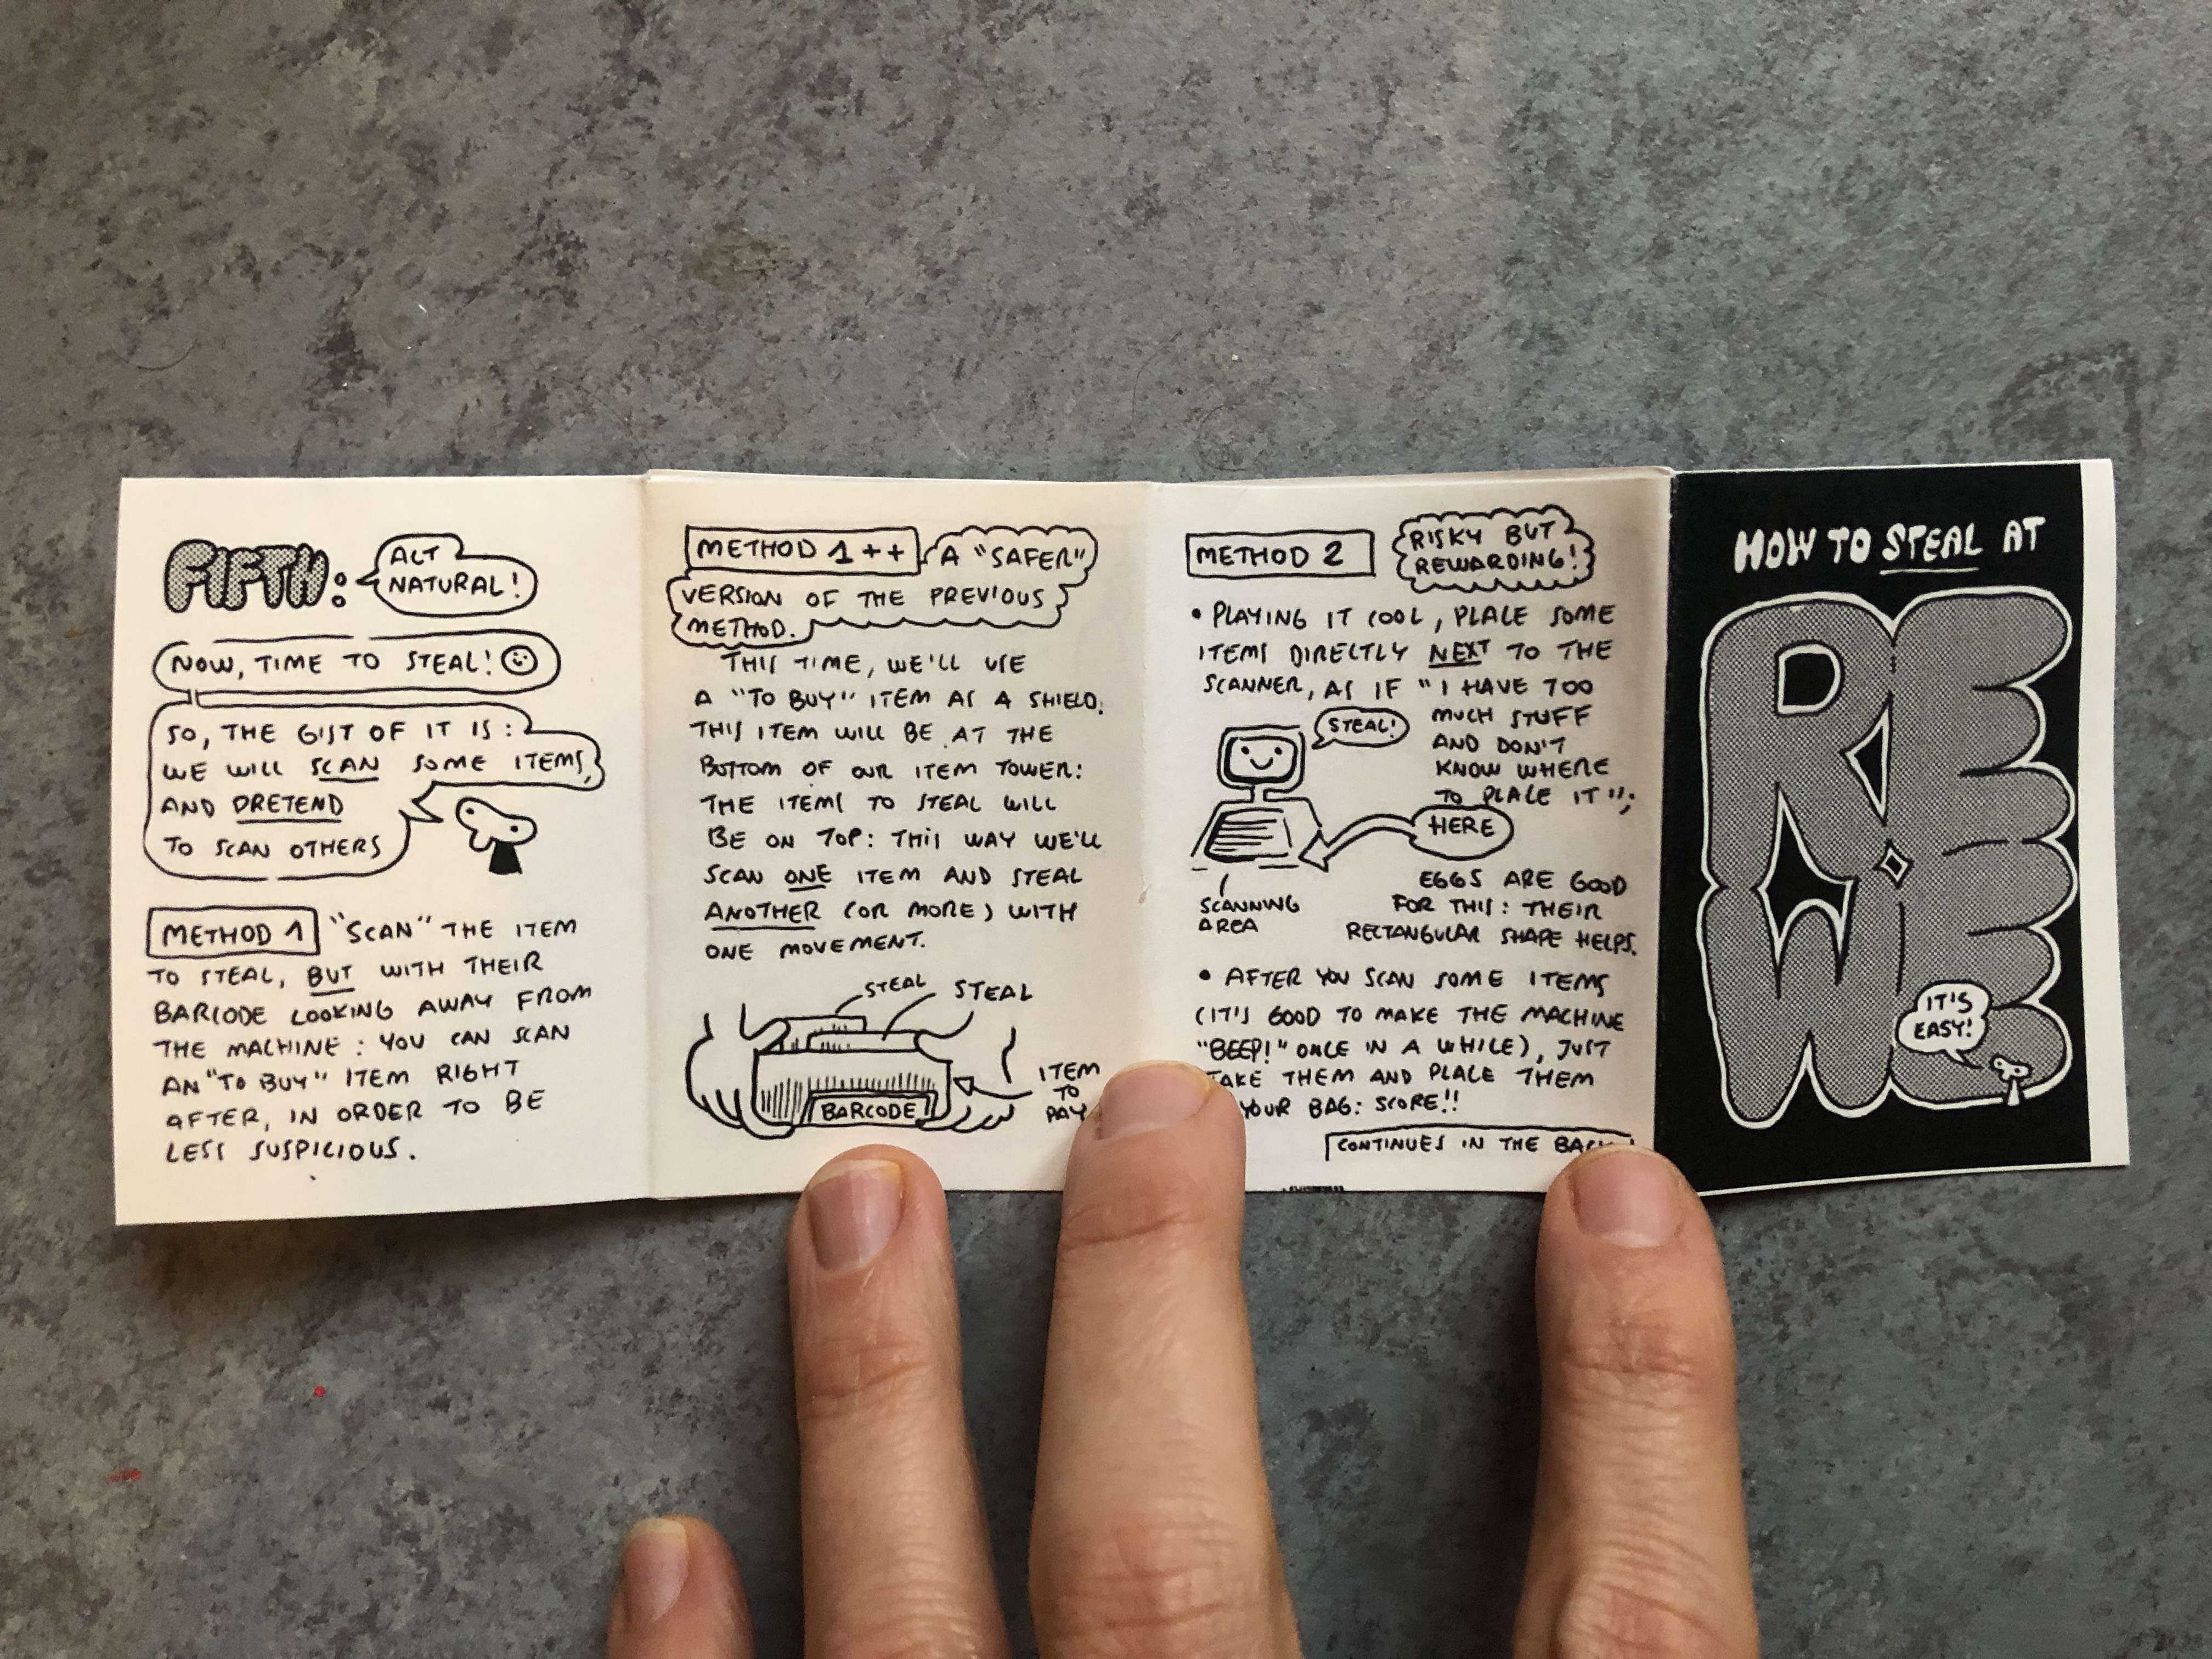 FIFTH:
ACT
NATURAL!
NOW, TIME TO STEAL!
SO, THE GIST OF IT IS:
WE WILL SCAN SOME ITEMS,
AND PRETEND
TO SCAN OTHERS
METHOD 1 "SCAN" THE ITEM
TO STEAL, BUT WITH THEIR
BARCODE LOOKING AWAY FROM
THE MACHINE: YOU CAN SCAN
AN "TO BUY" ITEM RIGHT
AFTER, IN ORDER TO BE
LESS SUSPICIOUS.
METHOD 1++ A "SAFER"
VERSION OF THE PREVIOUS
METHOD.
THIS TIME, WE'LL USE
A "TO BUY" ITEM AS A SHIELD.
THIS ITEM WILL BE AT THE
BOTTOM OF OUR ITEM TOWER:
THE ITEMS TO STEAL WILL
BE ON TOP: THIS WAY WE'LL
SCAN ONE ITEM AND STEAL
ANOTHER (OR MORE) WITH
ONE MOVEMENT.
STEAL STEAL
ITEM
TO
PAY
BARCODE
METHOD 2
RISKY BUT
REWARDING!
• PLAYING IT COOL, PLACE SOME
ITEMS DIRECTLY NEXT TO THE
SCANNER, AS IF "I HAVE TOO
MUCH STUFF
AND DON'T
KNOW WHERE
TO PLACE IT";
STEAL!
HERE
SCANNING
AREA
EGGS ARE GOOD
FOR THIS: THEIR
RECTANGULAR SHAPE HELPS.
• AFTER YOU SCAN SOME ITEMS
(IT'S GOOD TO MAKE THE MACHINE
"BEEP!" ONCE IN A WHILE), JUST
TAKE THEM AND PLACE THEM
YOUR BAG: SCORE!!
CONTINUES IN THE BACK
HOW TO STEAL AT
RE
WE
IT'S
EASY!